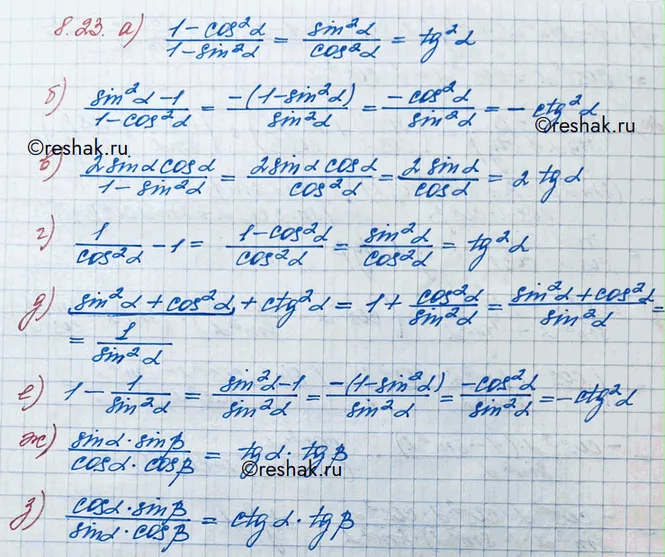 8.23. а) (1-cos²α)/(1-sin²α) = sin²α/cos²α = tg²α
б) (sin²α-1)/(1-cos²α) = -(1-sin²α)/sin²α = -cos²α/sin²α = -ctg²α
©reshak.ru
©reshak.ru
в) 2sinα cosα/(1-sin²α) = 2sinα cosα/cos²α = 2sinα/cosα = 2 tgα
г) 1/cos²α - 1 = (1-cos²α)/cos²α = sin²α/cos²α = tg²α
д) sin²α + cos²α + ctg²α = 1 + cos²α/sin²α = (sin²α + cos²α)/sin²α =
= 1/sin²α
е) 1 - 1/sin²α = (sin²α-1)/sin²α = -(1-sin²α)/sin²α = -cos²α/sin²α = -ctg²α
ж) sinα·sinβ/(cosα·cosβ) = tgα·tgβ
©reshak.ru
з) cosα·sinβ/(sinα·cosβ) = ctgα·tgβ